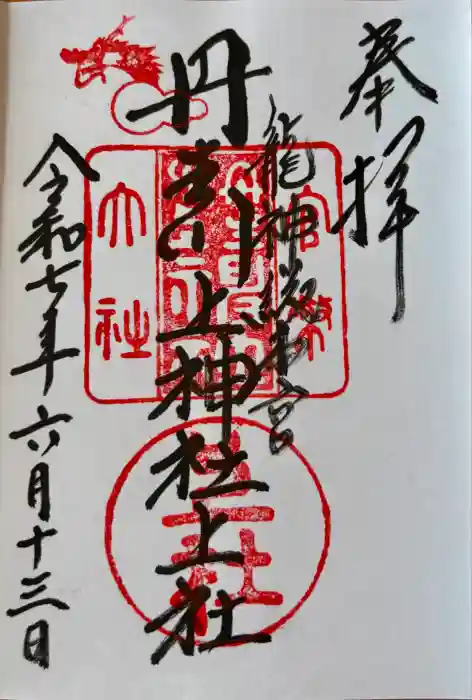 奉拝
龍神総本宮
丹生川上神社上社
令和七年六月十三日
官幣
大社